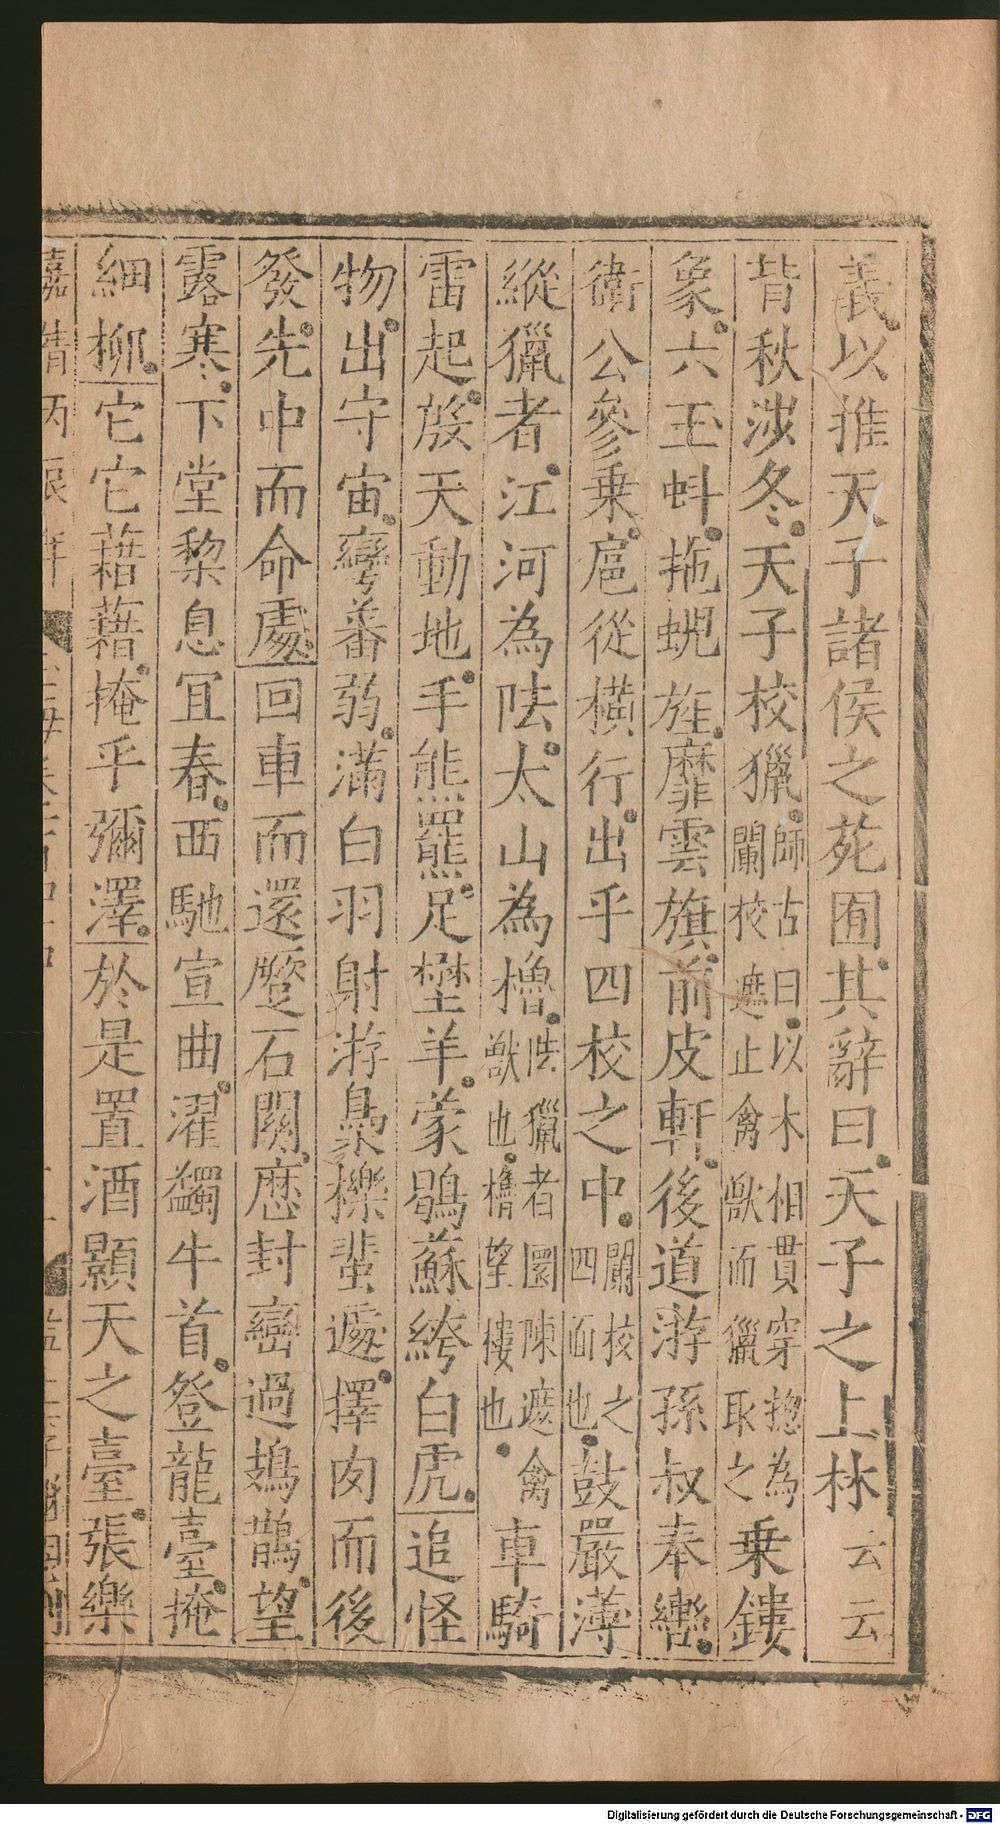 義以推天子諸侯之苑囿其辭曰天子之上林云云
背秋涉冬天子校獵師古曰以木相貫穿揔為闌校遮止禽獸而獵取之乗鏤
象六玉虯拖蜺旌靡雲旗前皮軒後道游孫叔奉轡
衛公參乗扈從橫行出乎四校之中闌校之四面也鼓嚴薄
縱獵者江河為阹太山為櫓阹獵者圜陳遮禽獸也櫓望樓也車騎
雷起殷天動地手熊羆足壄羊蒙鶡蘇絝白虎追怪
物出宇宙彎蕃弱滿白羽射游梟櫟蜚遽擇肉而後
發先中而命處回車而還蹷石關歷封巒過鳷鵲望
露寒下堂棃息宜春西馳宣曲濯鷁牛首登龍臺掩
細柳它它藉藉掩乎彌澤於是置酒顥天之臺張樂
Digitalisierung gefördert durch die Deutsche Forschungsgemeinschaft - DFG